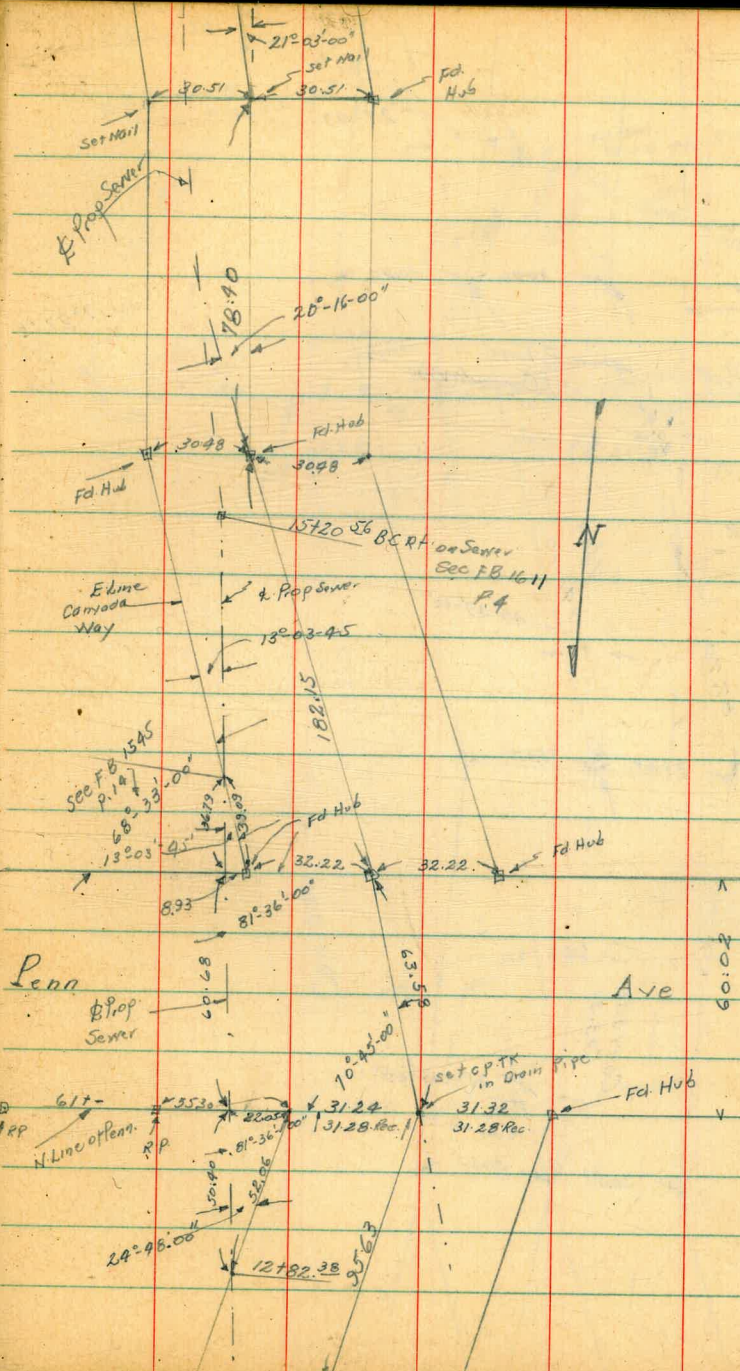 21°-03'-00"
Set Nail
30.51
30.51
Fd.
Hub
Set Nail
℄ Prop Sewer
78.40
20°-16-00"
30.48
Fd. Hub
30.48
Fd. Hub
15+20.56 B.C. Rt. on Sewer
See FB 1611
P. 4
E Line
Canyada
Way
℄ Prop Sewer
13°-03-45
182.15
See FB 1545
P. 14
68°-33'-00"
13°-03'-45"
36.79
39.09
Fd Hub
32.22
32.22
Fd. Hub
8.93
81°-36'-00"
Penn
Ave
60.02
60.68
℄ Prop.
Sewer
63.58
70°-45'-00"
set c.p. TK
in Drain Pipe
61+-
35.30
22.05
31.24
31.32
Fd. Hub
RP
R.P.
31.28 Rec.
31.28 Rec.
N. Line of Penn.
81°-36'-00"
50.40
52.06
24°-48-00"
12+82.38
95.63
N